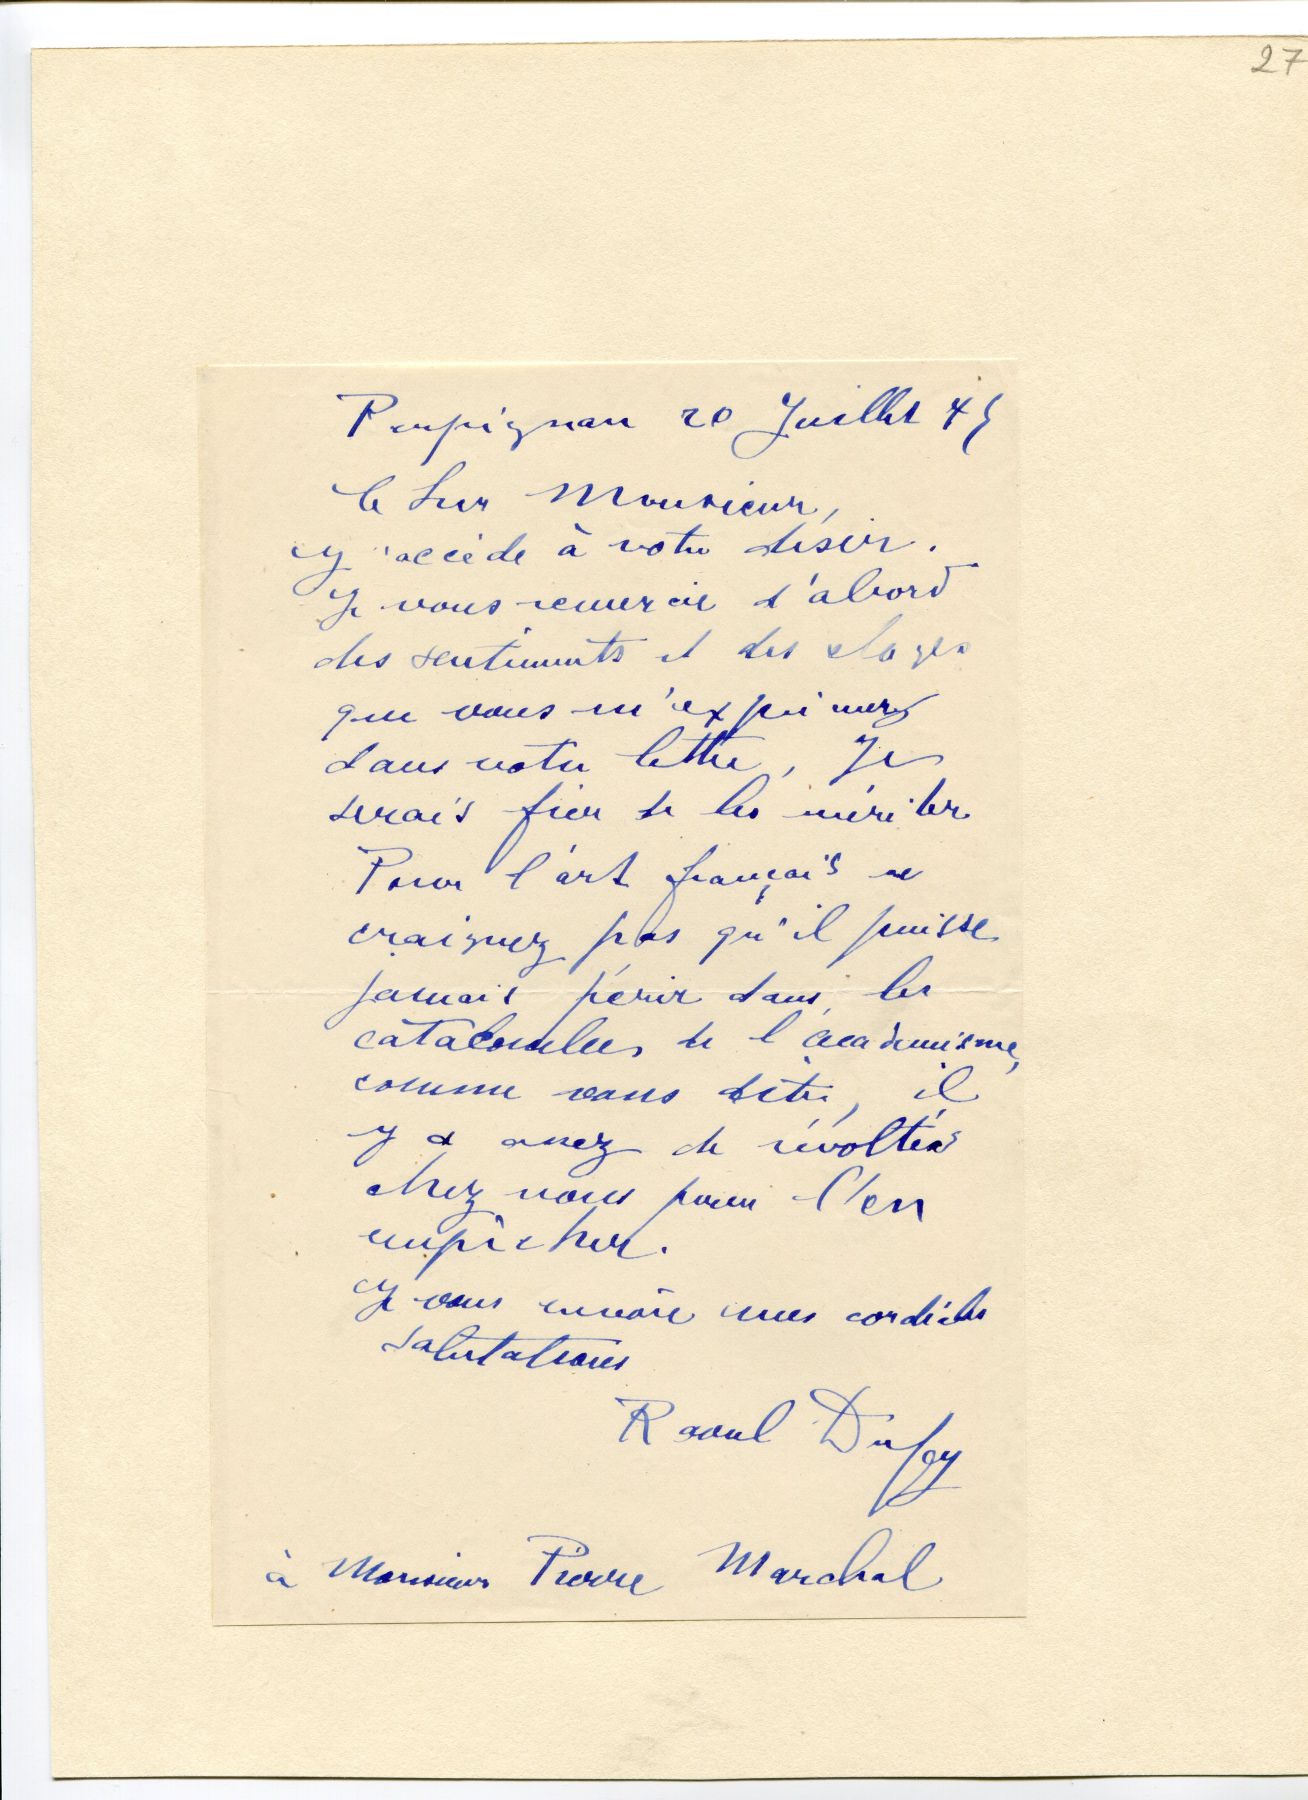 27
Perpignan 20 Juillet 45
Cher Monsieur,
J'accède à votre désir.
Je vous remercie d'abord
des sentiments et des éloges
que vous m'exprimez
dans votre lettre, Je
serais fier de les mériter
Pour l'art français ne
craignez pas qu'il puisse
jamais périr dans les
catacombes de l'académisme,
comme vous dites, il
y a assez de révoltés
chez nous pour l'en
empêcher.
Je vous envoie mes cordiales
salutations
Raoul Dufy
à Monsieur Pierre Marchal